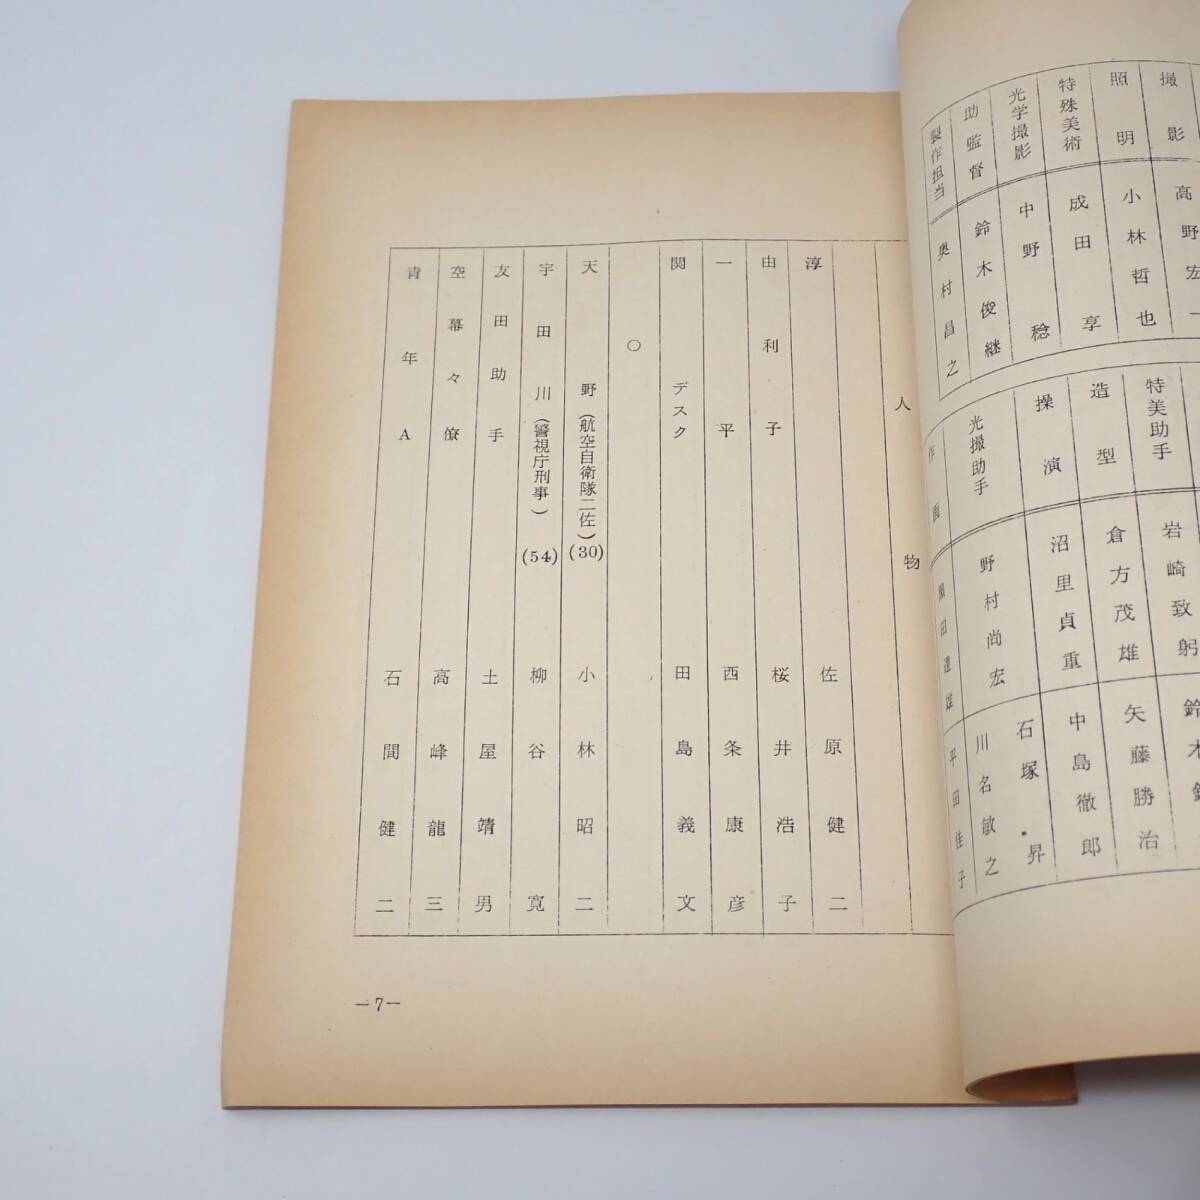 撮影 高野宏一
照明 小林哲也
特殊美術 成田亨
光学撮影 中野稔
助監督 鈴木俊継
製作担当 奥村昌之
特美助手 岩崎致躬
造型 倉方茂雄 矢藤勝治
操演 沼里貞重 中島徹郎
光撮助手 野村尚宏 石塚昇
川名敏之
作画 平田佳子
人物
淳 佐原健二
由利子 桜井浩子
一平 西条康彦
関デスク 田島義文
○
天野(航空自衛隊二佐)(30) 小林昭二
宇田川(警視庁刑事)(54) 柳谷寛
友田助手 土屋靖男
空幕々僚 高峰龍三
青年A 石間健二
—7—